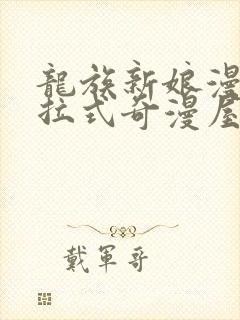 龍族新娘漫
拉式奇漫屋
戴軍哥